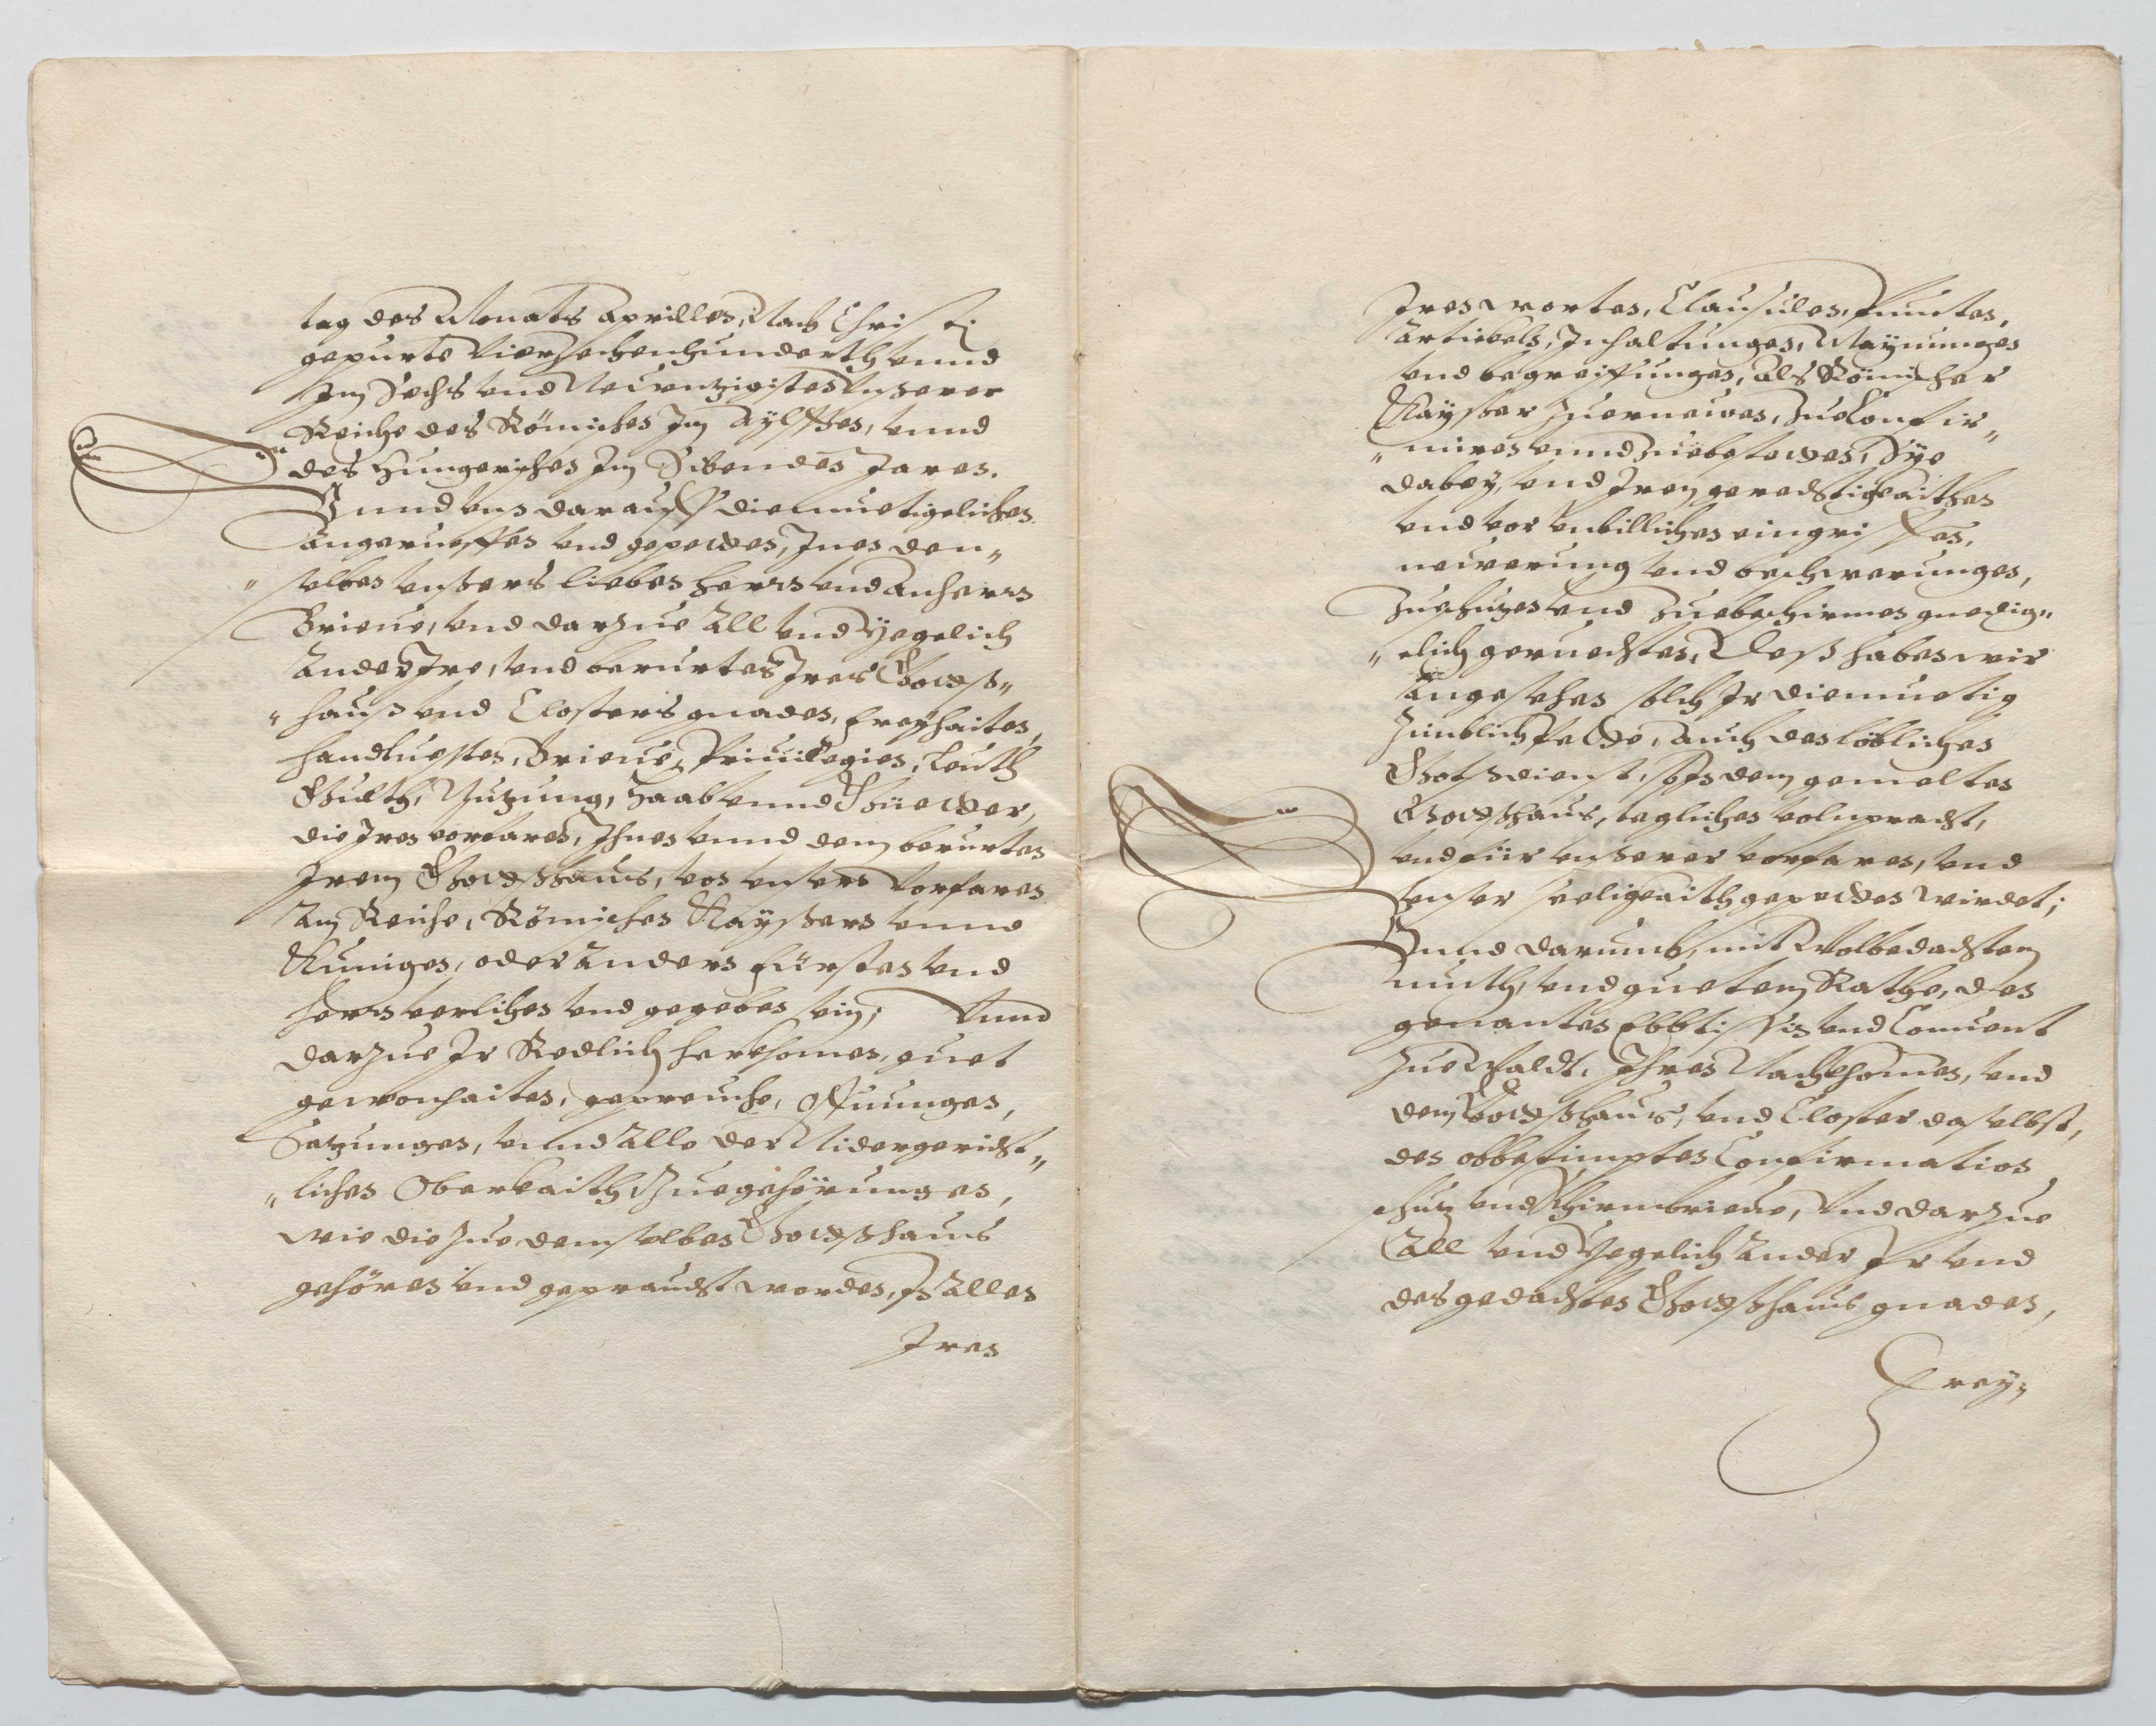 tag des Monats Aprilles, Nach Christi
gepurte Vierzechenhunderth vnnd
Im Sechs vnd Neüenzigisten Vnserer
Reiche des Römischen Im Aylfften, vnnd
des Hungerischen Im Sibenden Jaren.
Vnnd vns darauff diemuetigelichen
angerueffen vnd gepetten, Inen den„
„selben vnsers lieben herrn vnd anherrn
Brieue, vnd darzue all vnd yegelich
Ander Ire, vnd berurten Ires Gottß„
„hauß vnd Closters gnaden, freyhaiten,
handtuesten, Brieue, Priuilegien, Leuth
Guetth, Nutzung, Haab vnnd Güetter,
die Iren vorfaren, Ihnen vnnd dem berurten
Irem Gottßhaus, von vnsern Vorfaren
Am Reiche, Römischen Kaysern vnnd
Kunigen, oder Andern fürsten vnd
herrn verlichen vnd gegeben sein; Vnnd
darzue Ir Redlich herkhomen, guet
gewonhaiten, gepreuche, Offnungen,
Satzungen, vnnd alle der Nidergericht„
„lichen Oberkaith Zuegehörungen,
wie die zue demselben Gottßhaus
gehören vnd gepraucht werden, In allen
Iren
Iren worten, Clausulen, Puncten,
Articeln, Inhaltungen, Maynungen
vnd begreiffungen, als Römischer
Kayser zuerneüen, zue Confir„
„miren vnnd zuebestetten, Sye
dabey, vnd Irem gerechtigkaithen
vnd vor vnbillichen eingriffen,
neüerung vnd beschwerungen,
zueschuzen vnd zuebeschirmen gnedig„
„elich geruechten, Deß haben wir
angesehen solch Ir diemuetig
zimblich Pette, auch den löblichen
Gotsdienst, so In dem gemelten
Gottßhaus, teglichen volnpracht,
vnd für vnserer vorfaren, vnd
vnser seeligkaith gepetten wirdet;
Vnnd darumb, mit Wolbedachtem
muth, vnd guetem Rathe, den
genanten Ebbtissin vnd Conuent
zue Waldt, Ihren Nachkhomen, vnd
dem Gottßhaus, vnd Closter daselbst,
den obbestimpten Confirmation
schutz vnd Schirmbrieue, Vnd darzue
All vnd Yegelich Ander Ir vnd
des gedachten Gottßhaus gnaden,
Frey„